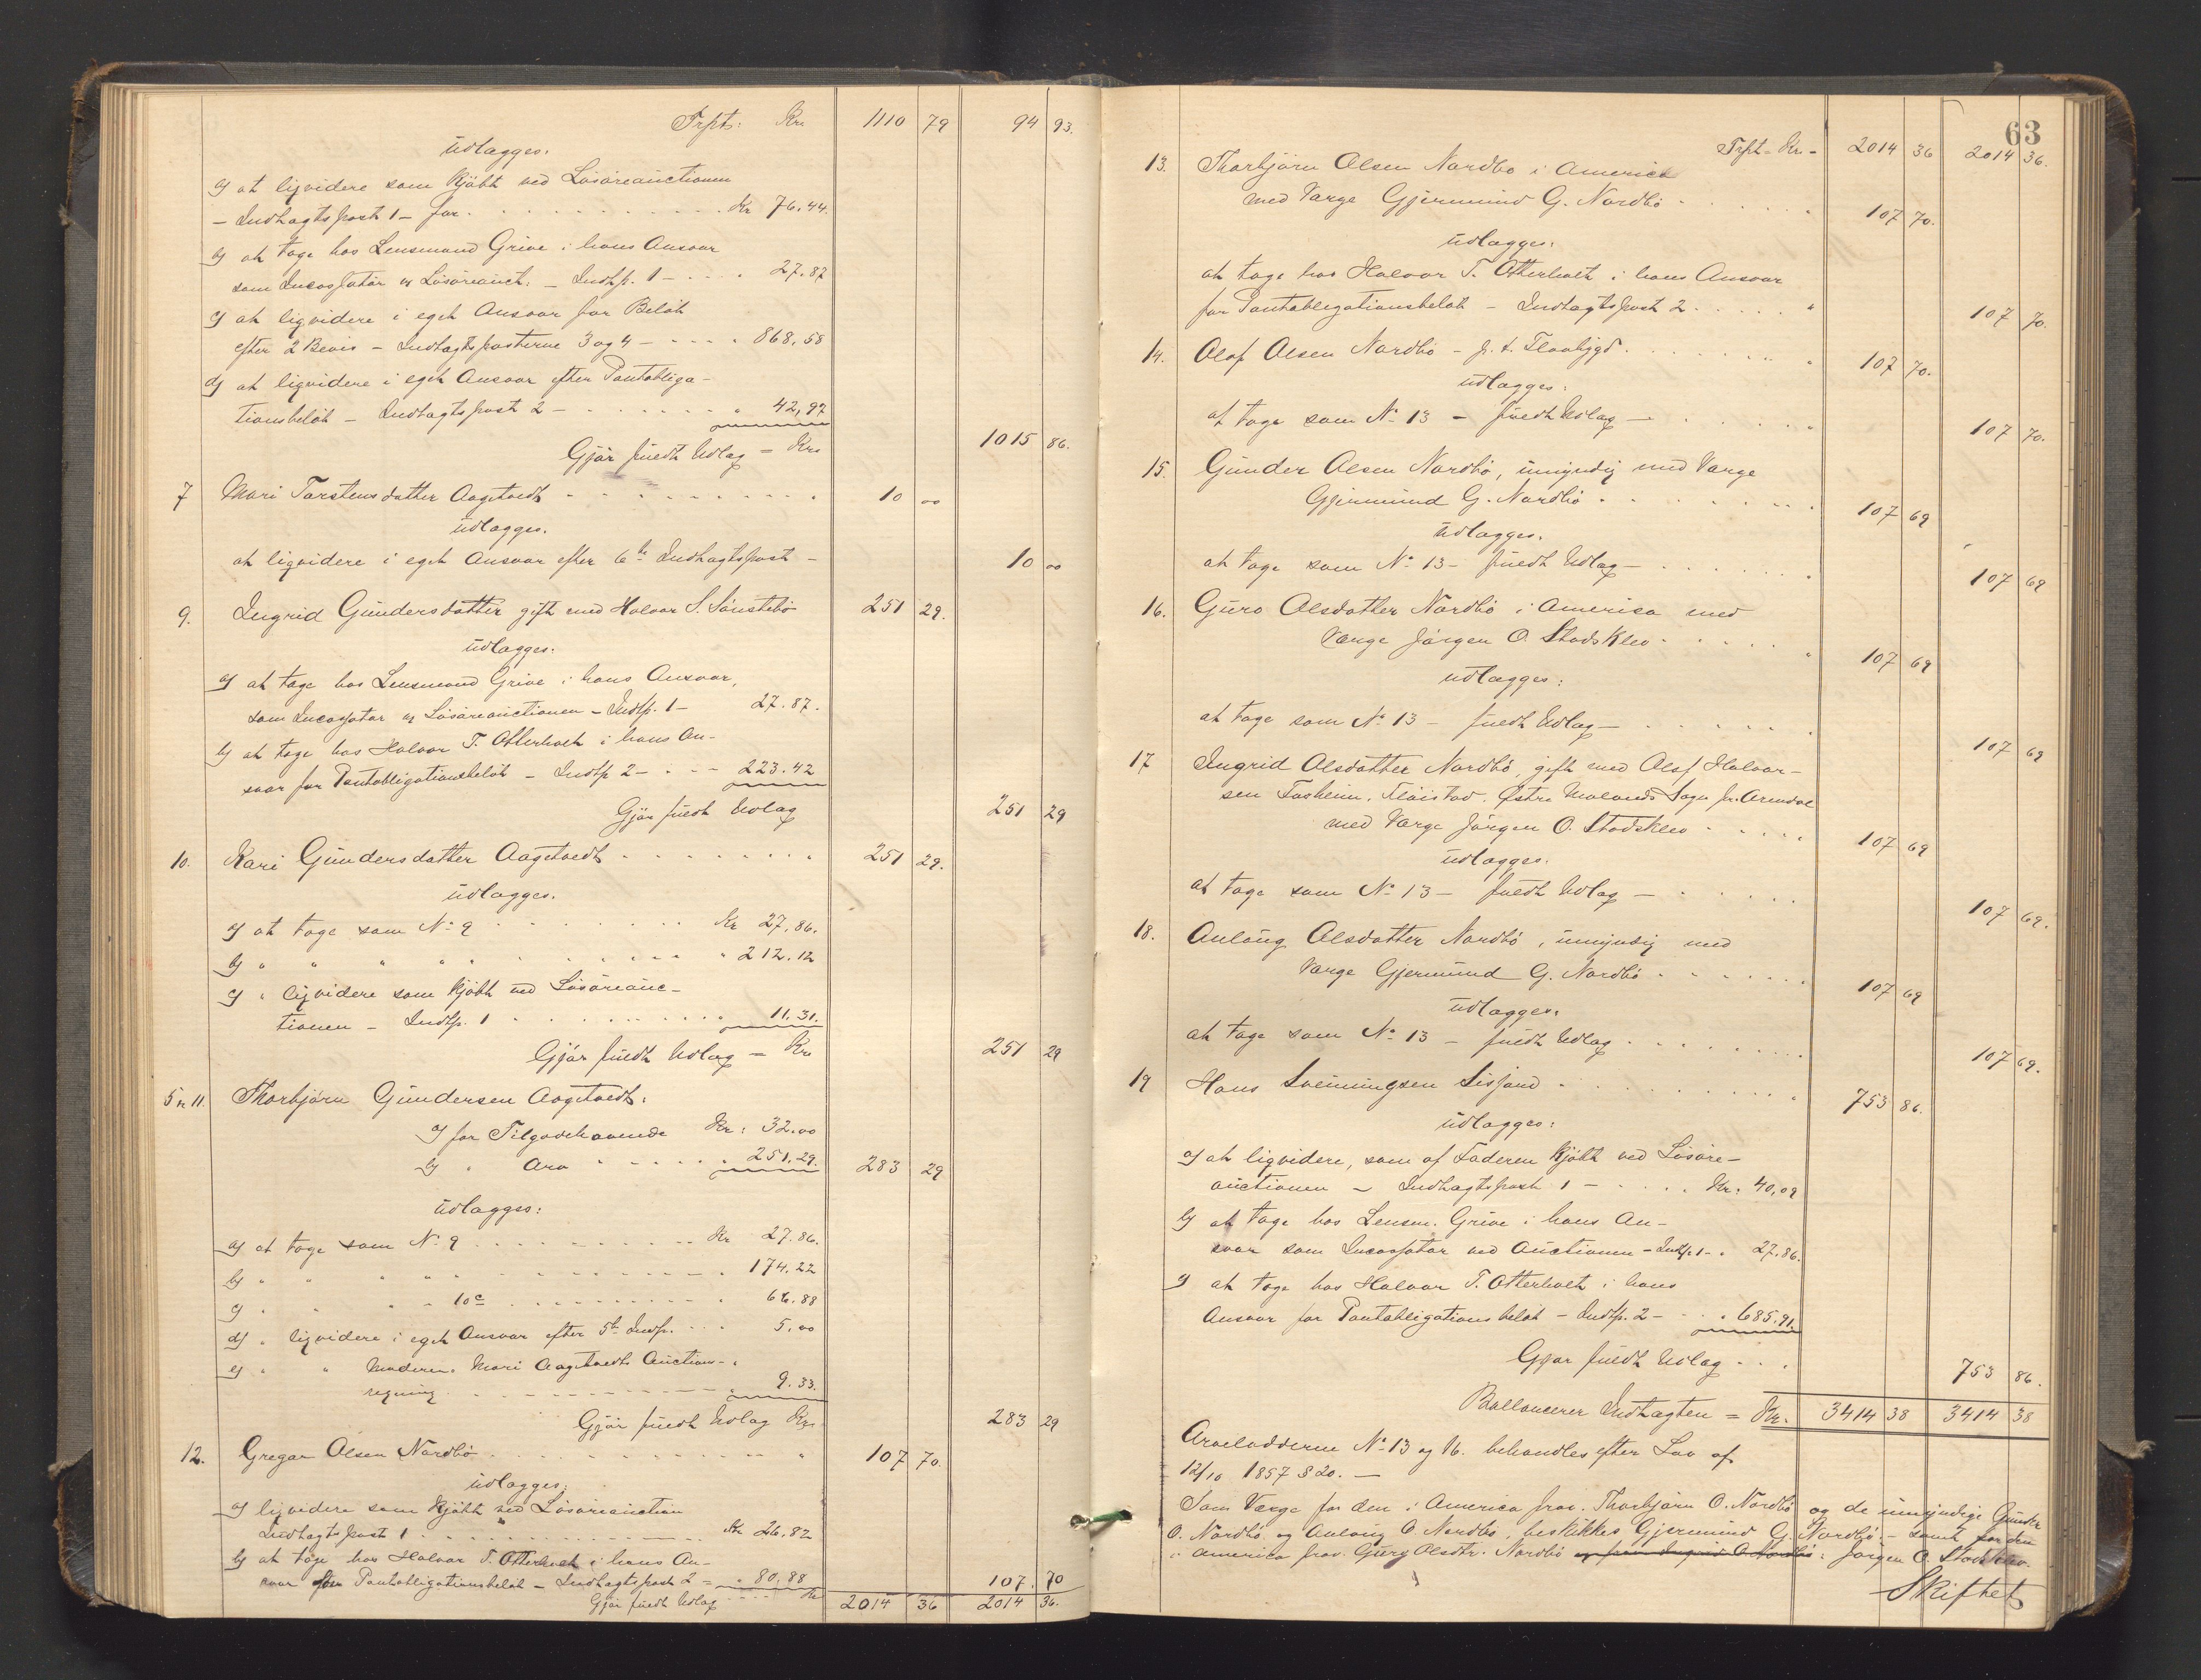 Trpt: Kr. 1110 79 94 93.
Udlægges.
a) at liqvidere som kjöbt ved Lösöreauctionen
- Indtægtspost 1 - for. Kr 76.44.
b) at tage hos Lensmand Grive i hans Ansvar
som Incassator v Lösöreauct. - Indtp. 1 - 27.87
c) at liqvidere i eget Ansvar for Belöb
efter 2 Bevis - Indtægtsposterne 3 og 4 - 868.58
d) at liqvidere i eget Ansvar efter Pantobliga-
tionsbelöb - Indtægtspost 2 - " 42,97
Gjör fuldt Udlæg = Kr. 1015 86.
7 Mari Torstensdatter Aagetvedt 10 00
Udlægges.
at liqvidere i eget Ansvar efter 6te Indtægtspost - 10 00
9. Ingrid Gundersdatter gift med Halvor S. Sönstebö 251 29.
Udlægges.
a) at tage hos Lensmand Grive i hans Ansvar,
som Incassator v Lösöreauctionen - Indtp. 1 - 27.87.
b) at tage hos Halvor T. Otterholt i hans An-
svar for Pantobligationsbelöb - Indtp 2 - 223.42
Gjör fuldt Udlæg 251 29
10. Kari Gundersdatter Aagetvedt 251 29.
Udlægges.
a) at tage som No 9 Kr 27.86.
b) " " " " " 212.12
c) " liqvidere som kjöbt ved Lösöreauc-
tionen - Indtp. 1 11.31.
Gjör fuldt Udlæg = Kr. 251 29
5 & 11. Thorbjörn Gundersen Aagetvedt:
a) for Tilgodehavende Kr: 32.00
b) " Arv " 251.29. 283 29
Udlægges:
a) at tage som No 9 Kr 27.86.
b) " " " " 174.22
c) " " " " 10c 66.88
d) " liqvidere i eget Ansvar efter 5te Indtp. 5.00
e) " " Moderen Mari Aagetvedts Auctions-
regning 9.33.
Gjör fuldt Udlæg Kr. 283 29
12. Gregar Olsen Nordbö " 107 70.
Udlægges:
a) liqvidere som kjöbt ved Lösöreauction
Indtægtspost 1 Kr 26.82
b) at tage hos Halvor T. Otterholt i hans An-
svar for Pantobligationsbelöb - Indtægtspost 2 = " 80.88 107. 70
Gjör fuldt Udlæg Kr 2014 36 2014 36.
63
Trpt = Kr - 2014 36 2014 36.
13. Thorbjörn Olsen Nordbo i America
med Værge Gjermund G. Nordbö 107 70.
Udlægges.
at tage hos Halvor T. Otterholt i hans Ansvar
for Pantobligationsbelöb - Indtægtspost 2 " 107 70.
14. Olaf Olsen Nordbö - p. t. Flaabygd " 107 70.
Udlægges:
at tage som No 13 - fuldt Udlæg - 107 70.
15. Gunder Olsen Nordbö, umyndig med Værge
Gjermund G. Nordbö 107 69
Udlægges.
at tage som No 13 - fuldt Udlæg - 107 69
16. Guro Olsdatter Nordbö i America med
Værge Jörgen O. Stadsklev " 107 69
Udlægges:
at tage som No 13 - fuldt Udlæg - 107 69
17 Ingrid Olsdatter Nordbö, gift med Olaf Halvor-
sen Östre Molands Sogn pr. Arendal
med Værge Jörgen O. Stadsklev 107 69
Udlægges.
at tage som No 13 - fuldt Udlæg - 107 69.
18. Anlaug Olsdatter Nordbö, umyndig med
Værge Gjermund G. Nordbö 107 69
Udlægges.
at tage som No 13 - fuldt Udlæg 107 69.
19 Hans Sveinungsen Sisjord 753 86.
Udlægges:
a) at liqvidere, som af Faderen kjöbt ved Lösöre-
auctionen - Indtægtspost 1 - Kr: 40,09
b) at tage hos Lensm. Grive i hans An-
svar som Incassator ved Auctionen - Indtp. 1 - " 27.86.
c) at tage hos Halvor T. Otterholt i hans
Ansvar for Pantobligationsbelöb - Indtp. 2 - " 685.91.
Gjör fuldt Udlæg 753 86.
Ballancerer Indtægten = Kr. 3414 38 3414 38
Arvelodderne No 13 og 16. behandles efter Lov af
12/10 1857 § 20. -
Som Værge for den i America frav. Thorbjörn O. Nordbö og de umyndige Gunder
O. Nordbö og Anlaug O. Nordbö, beskikkes Gjermund G. Nordbö. - samt for den
i America frav. Guro Olsdtr. Nordbö og for Ingrid O. Nordbö: Jörgen O. Stadsklev.
Skiftet